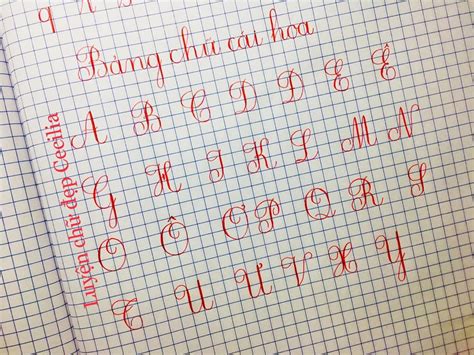 Bảng chữ cái hoa
A B C D Đ E Ê
G H I K L M N
O Ô Ơ P Q R S
T U Ư V X Y
Luyện chữ đẹp Cecilia